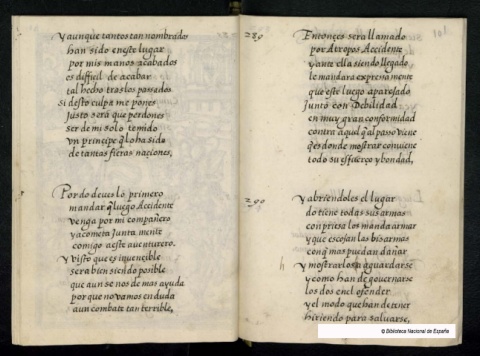 y aunque tantos tan nombrado
han sido eneste lugar
por mis manos acabados
es difficil de acabar
tal hecho tras los passados
si desto culpa me pones
Justo sera que perdones
ser de mi solo temido
vn principe q̃lo ha sido
de tantas fieras naciones,
Por do deues lo primero
mandar q̃luego Accidente
venga por mi compañero
y acometa Junta mente
comigo aeste auenturero.
y visto que es inuencible
sera bien siendo posible
que aun se nos de mas ayuda
por que no vamos en duda
a un combate tan terrible,
289
Entonçes sera llamado
por Atropos Accidente
y ante ella siendo llegado
le mandara expresamente
que este luego aparejado
Junto con Debilidad
en muy gran conformidad
contra aquel q̃ al passo viene
q̃es donde mostrar conuiene
todo su esfuerço y bondad,
290
y abriendoles el lugar
do tiene todas sus armas
con priesa los manda armar
y que escojan las bisarmas
con q̃ mas puedan dañar
y mostrarlos a aguardarse
y como han de gouernarse
los dos en el ofender
y el modo que han de tener
hiriendo para saluarse,
101
© Biblioteca Nacional de España